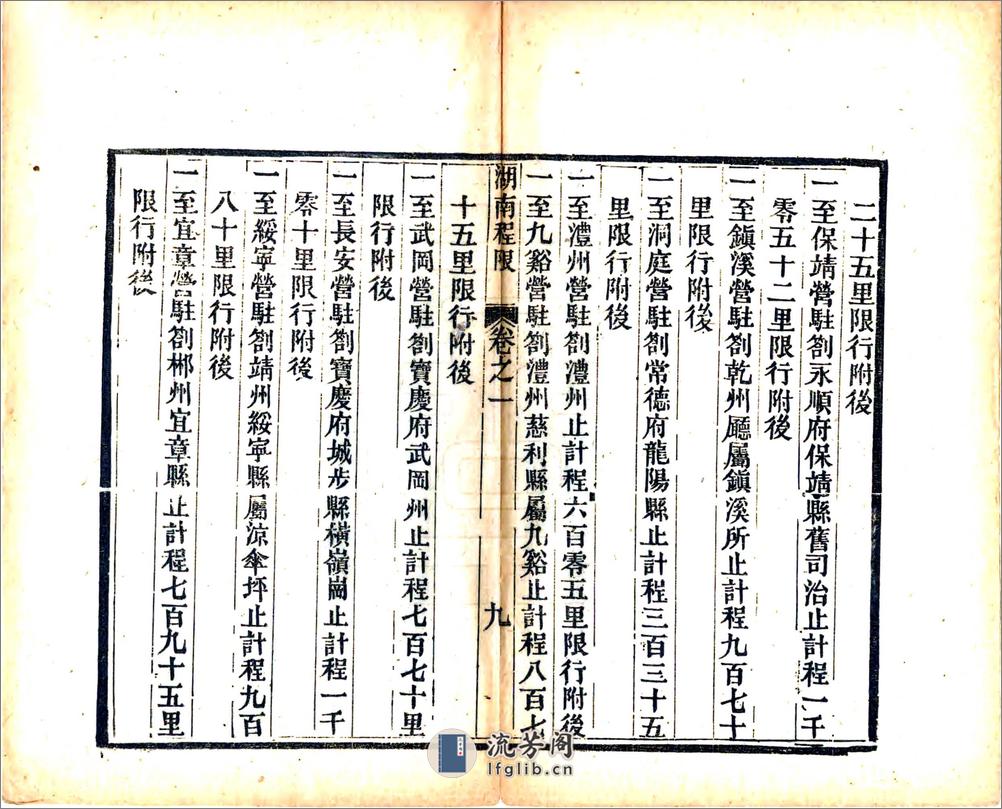 二十五里限行附後
一至保靖營駐劄永順府保靖縣舊司治止計程一千
零五十二里限行附後
一至鎮溪營駐劄乾州廳屬鎮溪所止計程九百七十
里限行附後
一至洞庭營駐劄常德府龍陽縣止計程三百三十五
里限行附後
一至澧州營駐劄澧州止計程六百零五里限行附後
一至九谿營駐劄澧州慈利縣屬九谿止計程八百七
湖南程限 卷之一 九
十五里限行附後
一至武岡營駐劄寶慶府武岡州止計程七百七十里
限行附後
一至長安營駐劄寶慶府城步縣橫嶺崗止計程一千
零十里限行附後
一至綏寧營駐劄靖州綏寧縣屬涼傘坪止計程九百
八十里限行附後
一至宜章營駐劄郴州宜章縣止計程七百九十五里
限行附後
流芳阁
lfglib.cn